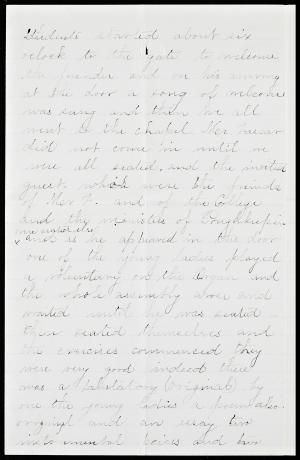 Students started about six
oclock to the gate to welcome
the founder and on his arriving
at the door a song of welcome
was sung and then we all
went to the chapel Mr Vassar
did not come in until we
were all seated, and the invited
guest which were the friends
of Mr V. and of the College
and the ministers of Poughkeepsie
were seated also
x and as he appeared in the door
one of the young ladies played
a voluntary on the organ and
the whole assembly arose and
waited until he was seated —
then seated themselves and
the exercises commenced they
were very good indeed there
was a Salutatory (original) by
one the young ladies a poem also
original and an essay two
instrumental pieces and two